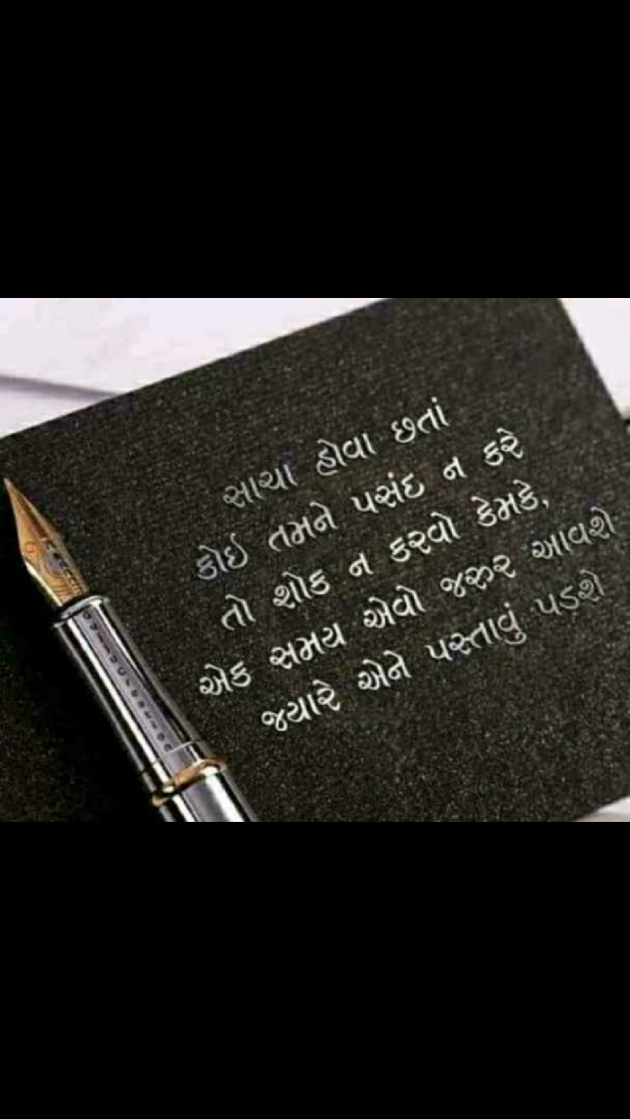 સાચા હોવા છતાં
કોઇ તમને પસંદ ન કરે
તો શોક ન કરવો કેમકે,
એક સમય એવો જરુર આવશે
જયારે એને પસ્તાવું પડશે